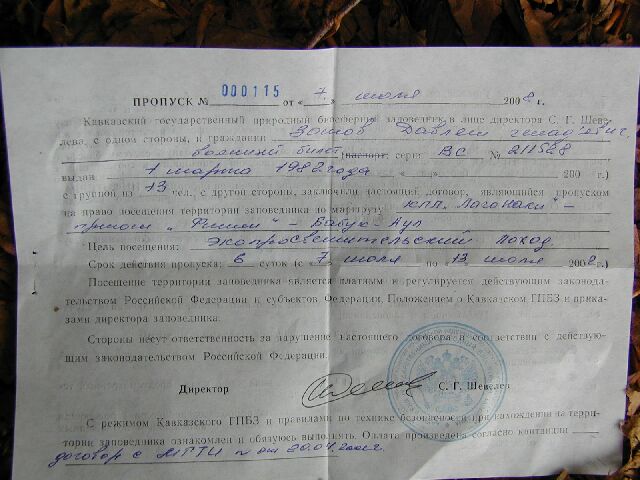 ПРОПУСК № 000115 от « 7 » июля 2008 г.
Кавказский государственный природный биосферный заповедник в лице директора С. Г. Шеве-
лева, с одной стороны, и гражданин Зотов Давлет
военный билет (паспорт: серия ВС № 211528
выдан 1 марта 1982 года 200 г.)
с группой из 13 чел. с другой стороны, заключили настоящий договор, являющийся пропуском
на право посещения территории заповедника по маршруту кпп. Лагонаки" –
приют „ Фишт" – Бабук-Аул
Цель посещения: Экопросветительский поход
Срок действия пропуска: 6 суток (с 7 июля по 13 июля 2008 г.)
Посещение территории заповедника является платным и регулируется действующим законода-
тельством Российской Федерации и субъектов Федерации, Положением о Кавказском ГПБЗ и прика-
зами директора заповедника.
Стороны несут ответственность за нарушение настоящего договора в соответствии с действую-
щим законодательством Российской Федерации.
Директор С. Г. Шевелев
С режимом Кавказского ГПБЗ и правилами по технике безопасности при нахождении на терри-
тории заповедника ознакомлен и обязуюсь выполнять. Оплата произведена согласно квитанции
договор с МГТИ от 20.04.